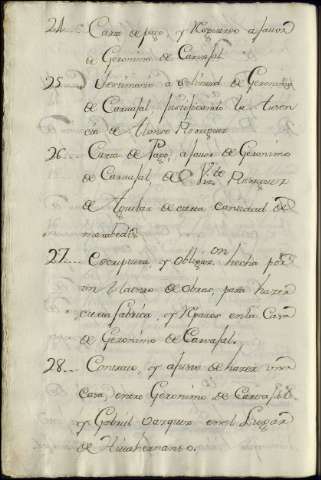 24... Carta de pago, y Requerdo a favor
de Geronimo de Carvajal
25.. Testimonio a solicitud de Geronimo
de Carvajal justificando la Ausen
cia de Alonso Rodriguez
26.. Carta de Pago a favor de Geronimo
de Carvajal, de Vi.te Rodriguez
de Aguilar de cierta cantidad de
maravedis
27... Escriptura, y obligazon hecha por
un Maestro de obras, para hazer
cierta fabrica, y Reparos en la Casa
de Geronimo de Carvajal.
28... Contrato, y ajuste de hazer una
Casa, entre Geronimo de Carvajal
y Gabriel Vazquez en el Lugar
de